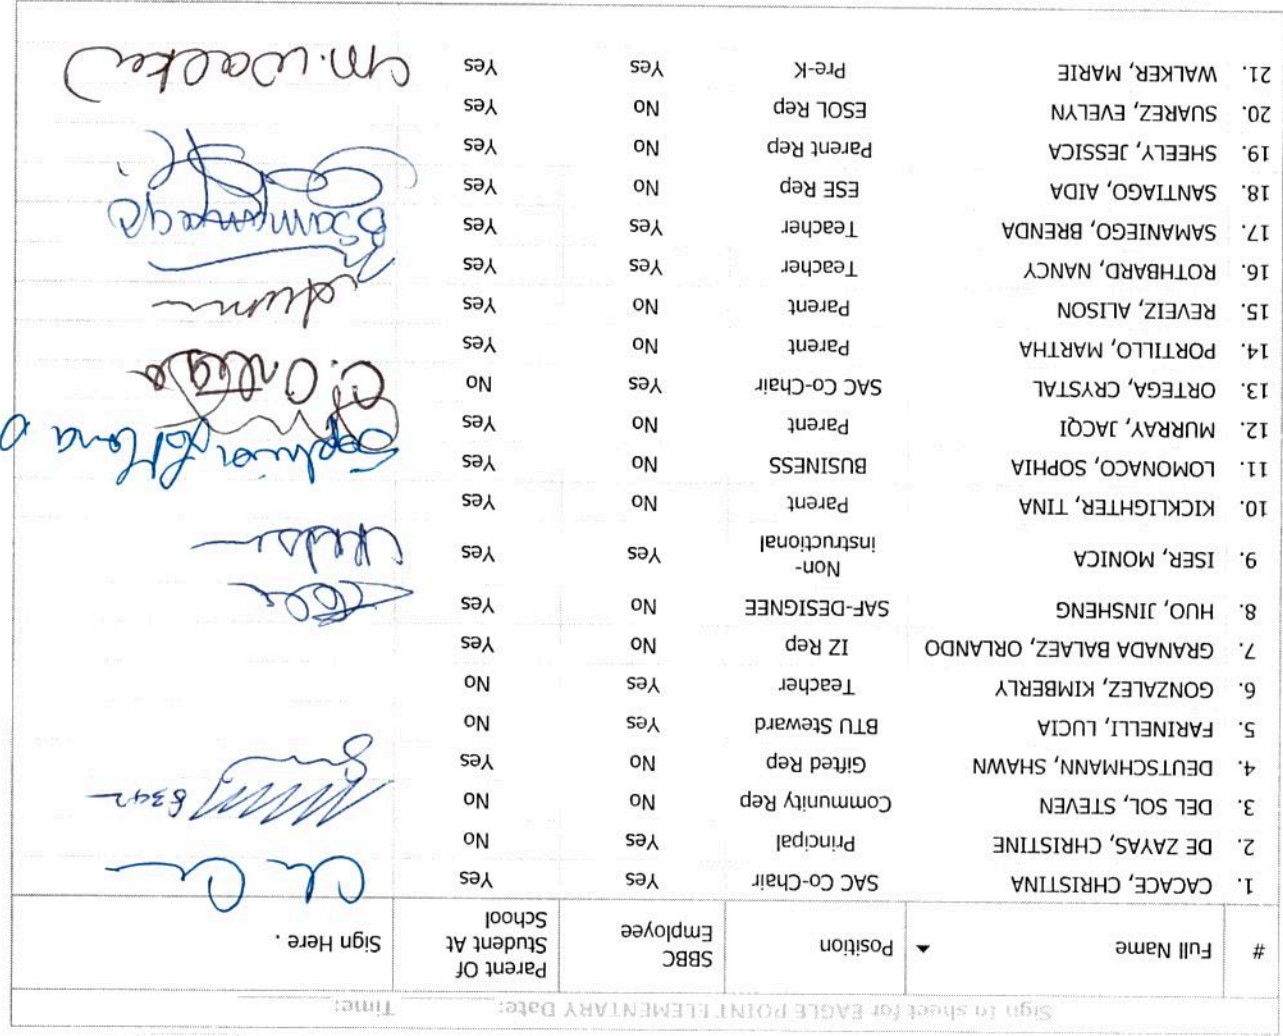 Sign In sheet for EAGLE POINT ELEMENTARY Date: Time:
# Full Name Position SBBC Employee Parent Of Student At School Sign Here .
1. CACACE, CHRISTINA SAC Co-Chair Yes Yes
2. DE ZAYAS, CHRISTINE Principal Yes No
3. DEL SOL, STEVEN Community Rep No No 8342
4. DEUTSCHMANN, SHAWN Gifted Rep No Yes
5. FARINELLI, LUCIA BTU Steward Yes No
6. GONZALEZ, KIMBERLY Teacher Yes No
7. GRANADA BALAEZ, ORLANDO IZ Rep No Yes
8. HUO, JINSHENG SAF-DESIGNEE No Yes
9. ISER, MONICA Non-instructional Yes Yes
10. KICKLIGHTER, TINA Parent No Yes
11. LOMONACO, SOPHIA BUSINESS No Yes
12. MURRAY, JACQI Parent No Yes
13. ORTEGA, CRYSTAL SAC Co-Chair Yes No C. Ortega
14. PORTILLO, MARTHA Parent No Yes
15. REVEIZ, ALISON Parent No Yes
16. ROTHBARD, NANCY Teacher Yes Yes
17. SAMANIEGO, BRENDA Teacher Yes Yes BSamaniego
18. SANTIAGO, AIDA ESE Rep No Yes
19. SHEELY, JESSICA Parent Rep No Yes
20. SUAREZ, EVELYN ESOL Rep No Yes
21. WALKER, MARIE Pre-K Yes Yes M. Walker